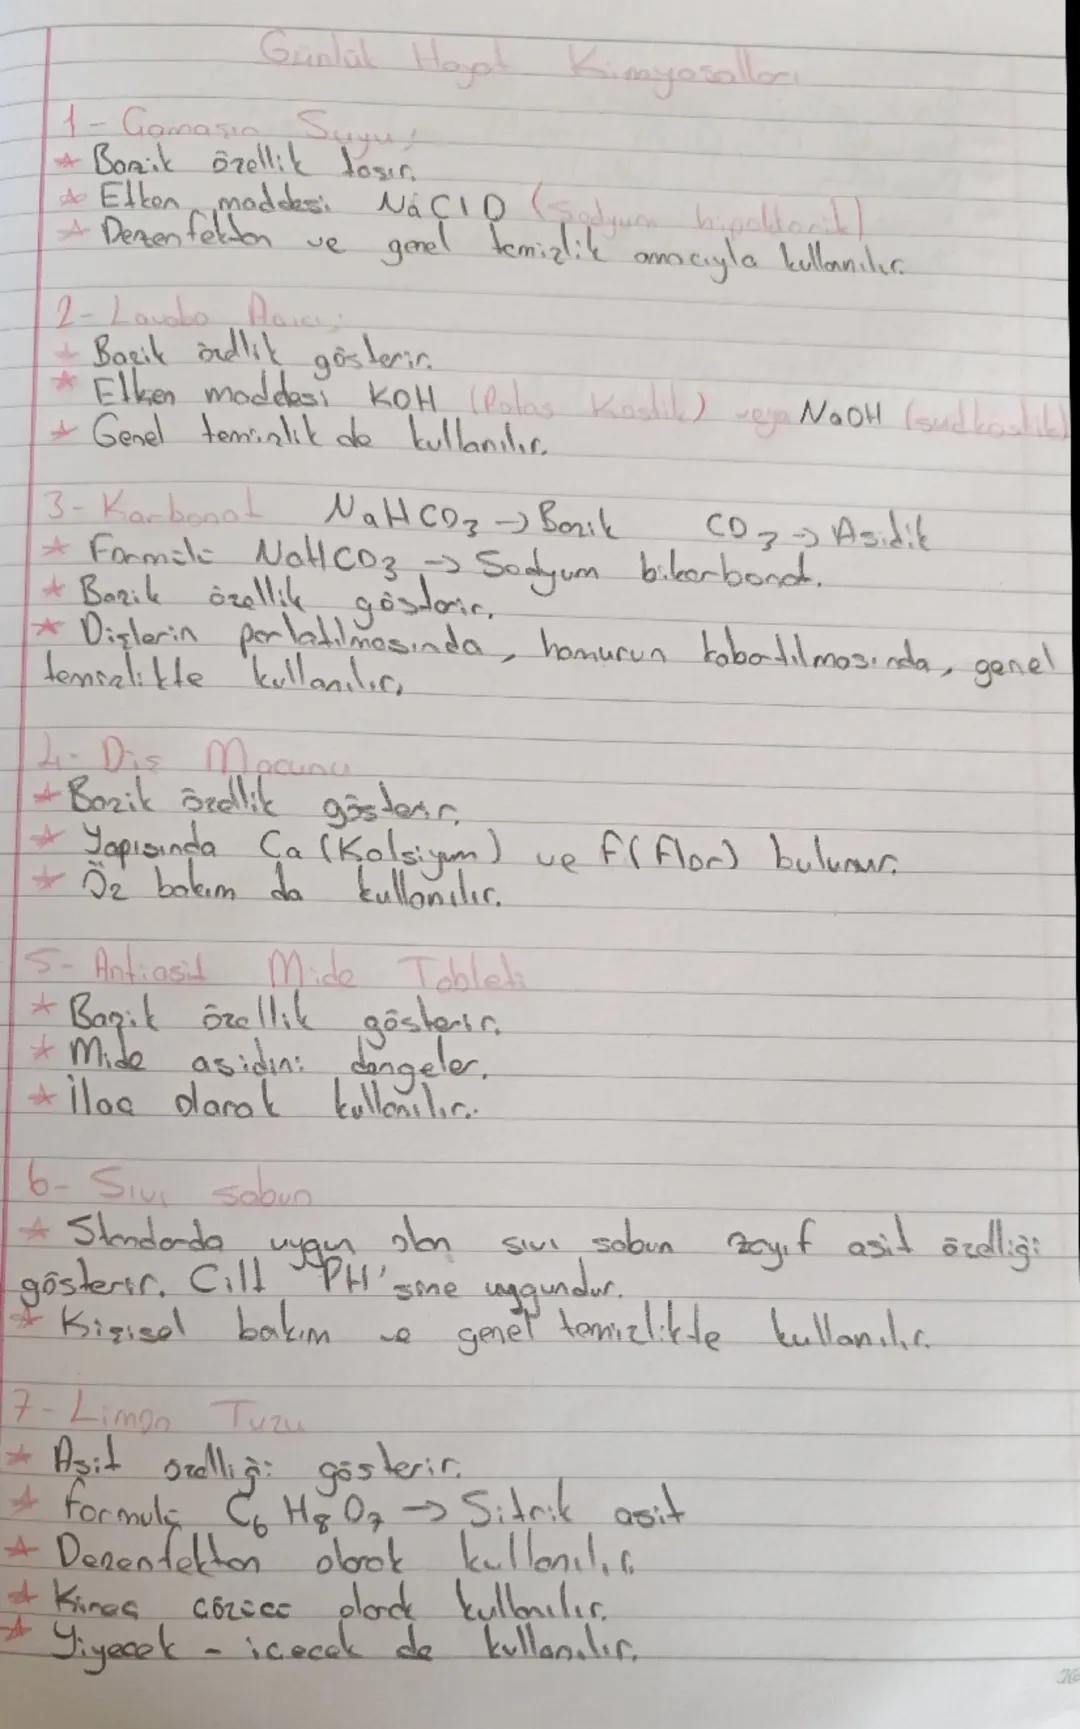 Günlük Hayat Kimyasalları
1- Çamaşır Suyu:
* Bazik özellik taşır.
* Etken maddesi NaClO (Sodyum hipoklorit)
* Dezenfektan ve genel temizlik amacıyla kullanılır.
2- Lavabo Açıcı:
* Bazik özellik gösterir.
* Etken maddesi KOH (Potas Kostik) veya NaOH (sud kostik)
* Genel temizlik de kullanılır.
3- Karbonat NaHCO3 → Bazik CO3 → Asidik
* Formülü NaHCO3 → Sodyum bikarbonat.
* Bazik özellik gösterir.
* Dişlerin parlatılmasında, hamurun kabartılmasında, genel
temizlikte kullanılır.
4- Diş Macunu
* Bazik özellik gösterir.
* Yapısında Ca (Kalsiyum) ve F (Flor) bulunur.
* Öz bakım da kullanılır.
5- Antiasit Mide Tableti
* Bazik özellik gösterir.
* Mide asidini dengeler.
* İlaç olarak kullanılır.
6- Sıvı sabun
* Standarda uygun olan sıvı sabun zayıf asit özelliği
gösterir. Cilt PH'sine uygundur.
* Kişisel bakım ve genel temizlikte kullanılır.
7- Limon Tuzu
* Asit özelliği gösterir.
* Formülü C6 H8 O7 → Sitrik asit
* Dezenfektan olarak kullanılır.
* Kireç çözücü olarak kullanılır.
* Yiyecek - içecek de kullanılır.